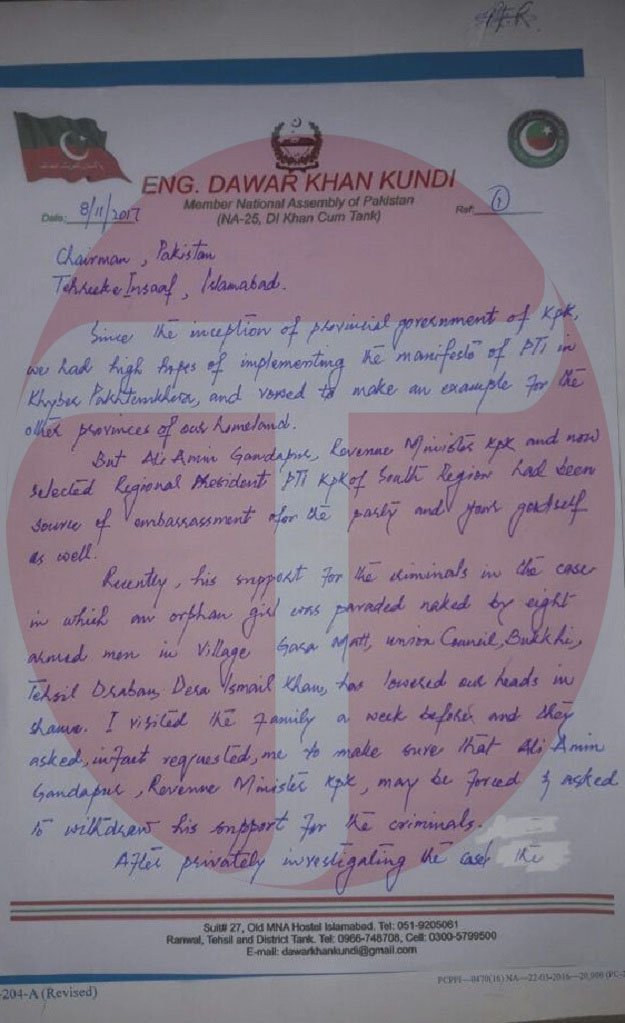 ENG. DAWAR KHAN KUNDI
Member National Assembly of Pakistan
(NA-25, DI Khan Cum Tank)
Date: 8/11/2017
Ref: 1
Chairman, Pakistan
Tehreeke Insaaf, Islamabad.
Since the inception of provincial government of KPK,
we had high hopes of implementing the manifesto of PTI in
Khyber Pakhtunkhwa, and vowed to make an example for the
other provinces of our homeland.
But Ali Amin Gandapur, Revenue Minister KPK and now
selected Regional President PTI KPK of South Region had been
source of embarassment for the party and your goodself
as well.
Recently, his support for the criminals in the case
in which an orphan girl was paraded naked by eight
armed men in village Gara Matt, union Council, Bukkhi,
Tehsil Draban, Dera Ismail Khan, has lowered our heads in
shame. I visited the family a week before and they
asked, infact requested, me to make sure that Ali Amin
Gandapur, Revenue Minister KPK, may be forced & asked
to withdraw his support for the criminals.
After privately investigating the case the
Suit# 27, Old MNA Hostel Islamabad. Tel: 051-9205061
Ranwal, Tehsil and District Tank. Tel: 0966-748708, Cell: 0300-5799500
E-mail: dawarkhankundi@gmail.com
-204-A (Revised)
PCPPI—0470(16) NA—22-03-2016—20,000 (PC-